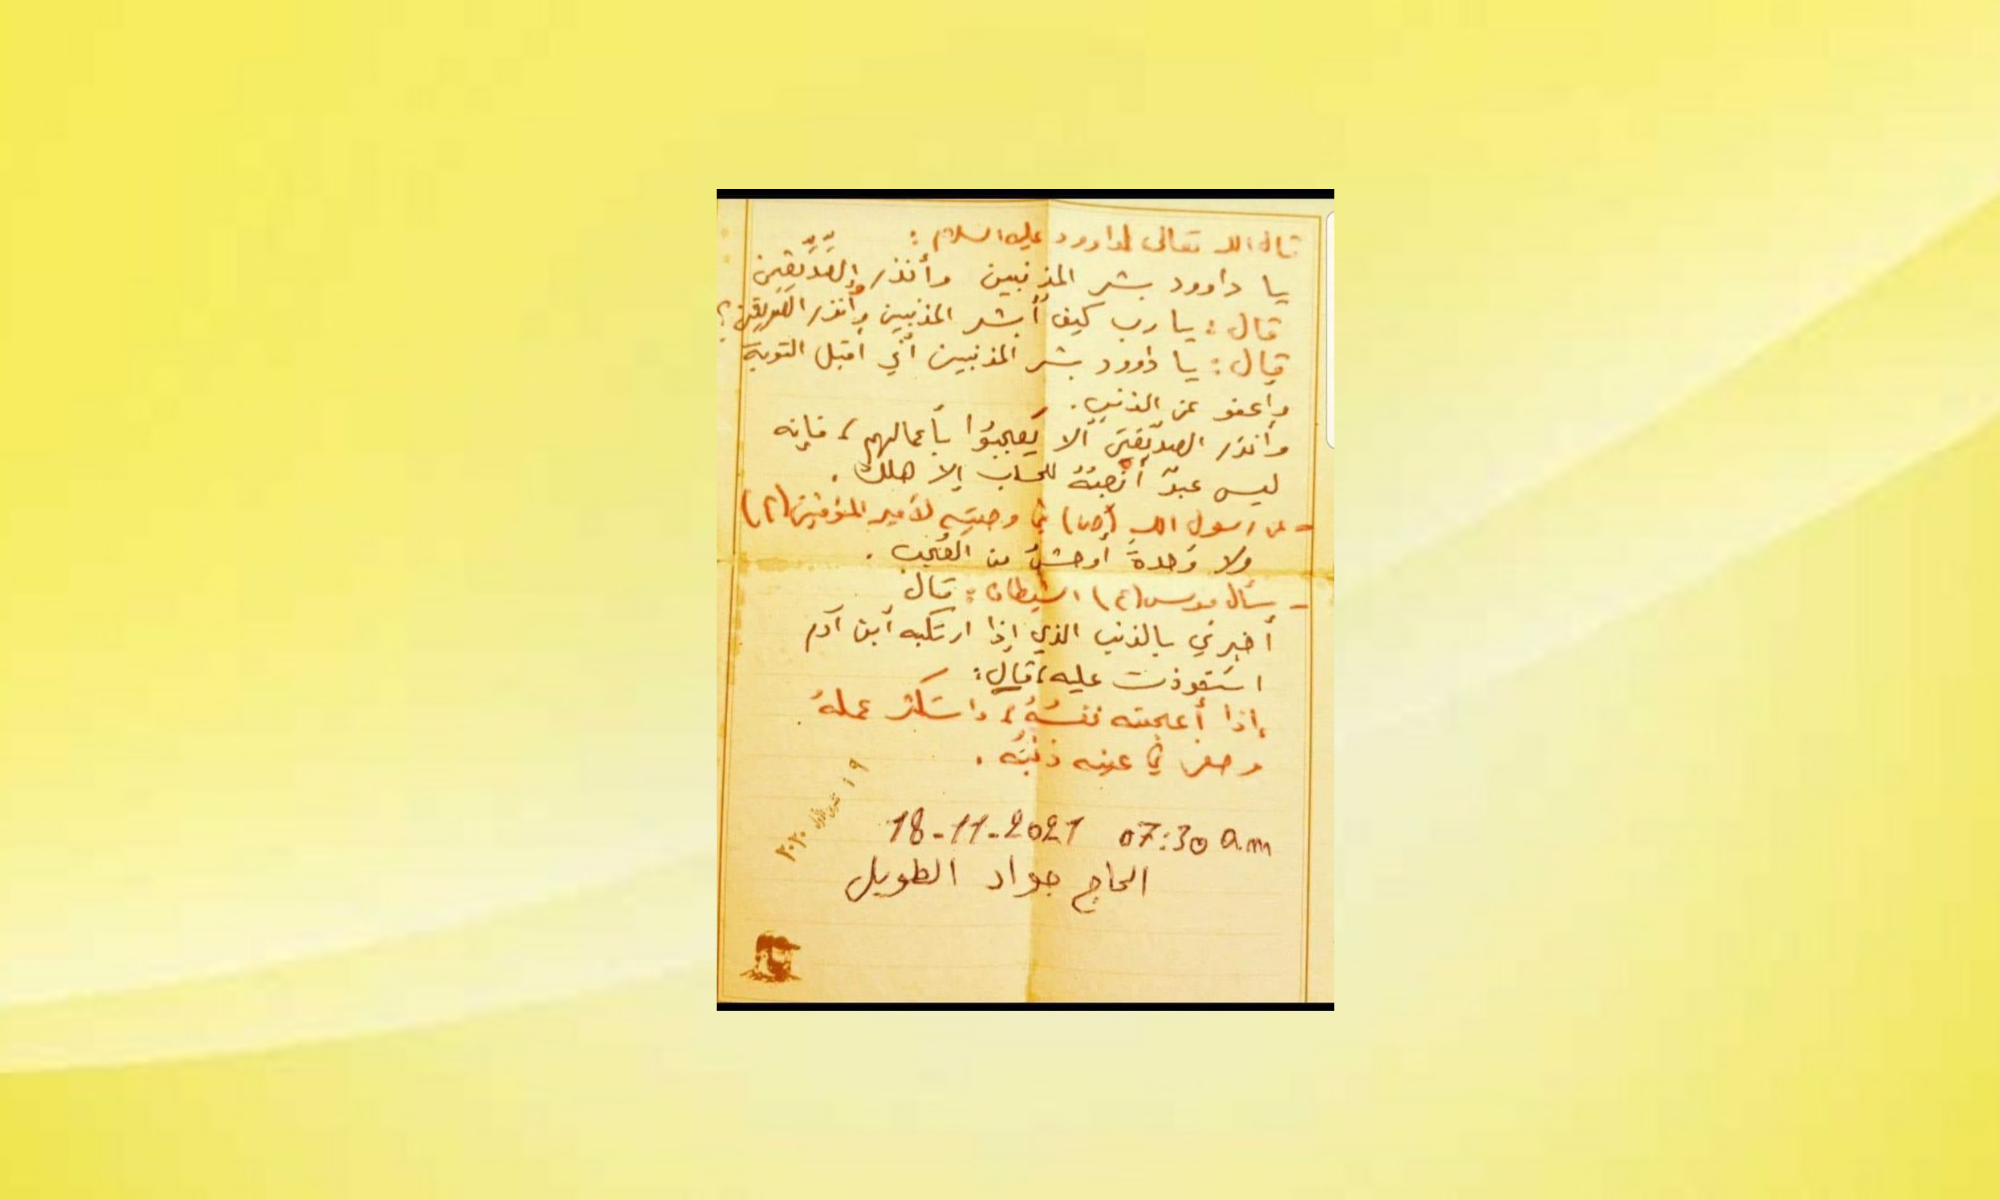 قال الله تعالى لداوود عليه السلام :
يا داوود بشر المذنبين وأنذر الصدّيقين
قال : يا رب كيف أبشر المذنبين وأنذر الصديقين ؟
قال : يا داوود بشر المذنبين أني أقبل التوبة
وأعفو عن الذنب .
وأنذر الصدّيقين ألا يُعجبوا بأعمالهم ، فإنه
ليس عبدٌ أنصبُهُ للحساب إلا هلك .
- عن رسول الله (ص) في وصيته لأمير المؤمنين (ع)
ولا وَحدةَ أوحشُ من العُجب .
- سأل موسى (ع) الشيطان : قال
أخبرني بالذنب الذي إذا ارتكبه أبن آدم
استحوذت عليه ، قال :
إذا أعجبته نفسُهُ ، واستكثر عملهُ
وصغر في عينه ذنبُه .
١٩ تشرين الأول ٢٠٢٠
18-11-2021 07:30 a.m
الحاج جواد الطويل